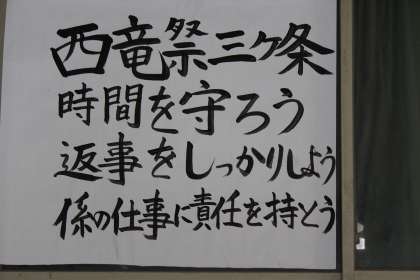 西竜祭三ケ条
時間を守ろう
返事をしっかりしよう
係の仕事に責任を持とう